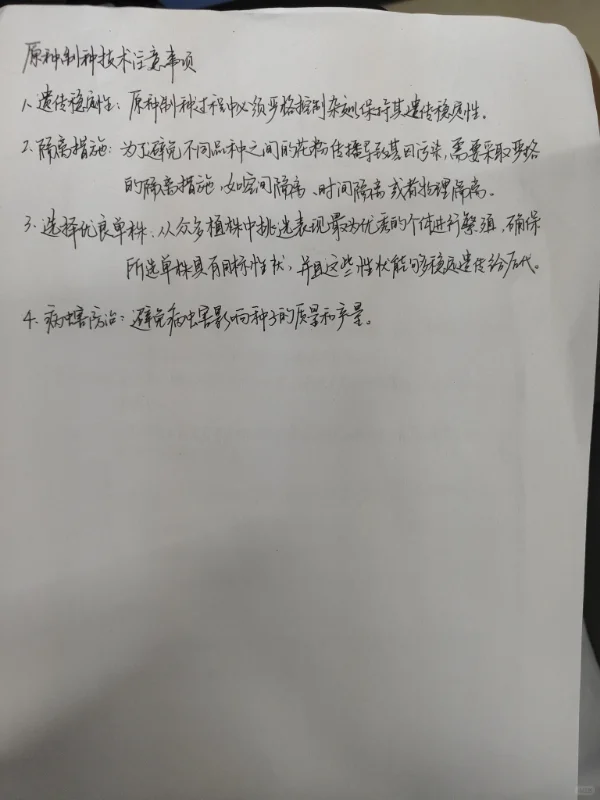 原种制种技术注意事项
1、遗传稳定性：原种制种过程中必须严格控制杂交，保持其遗传稳定性。
2、隔离措施：为了避免不同品种之间的花粉传播导致基因污染，需要采取严格
的隔离措施，如空间隔离、时间隔离或者物理隔离。
3、选择优良单株、从众多植株中挑选表现最为优秀的个体进行繁殖，确保
所选单株具有目标性状，并且这些性状能够稳定遗传给后代。
4、病虫害防治：避免病虫害影响种子的质量和产量。